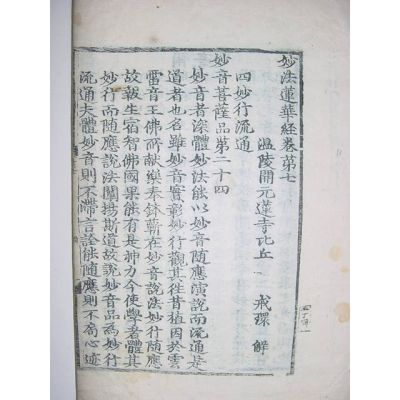 妙法蓮華經卷第七
溫陵開元蓮寺比丘 戒環 解
四妙行流通
妙音菩薩品第二十四
妙音者深體妙法能以妙音隨應演說而流通是
道者也名雖妙音實彰妙行觀其徃昔植因於雲
雷音王佛所獻樂奉鉢蘄在妙音說法妙行隨應
故報生宿智佛國果能有是神力今使學者體其
妙行而隨應說法闡揚斯道故說妙音品爲妙行
流通夫體妙音則不滯言詮能隨應則不局心迹